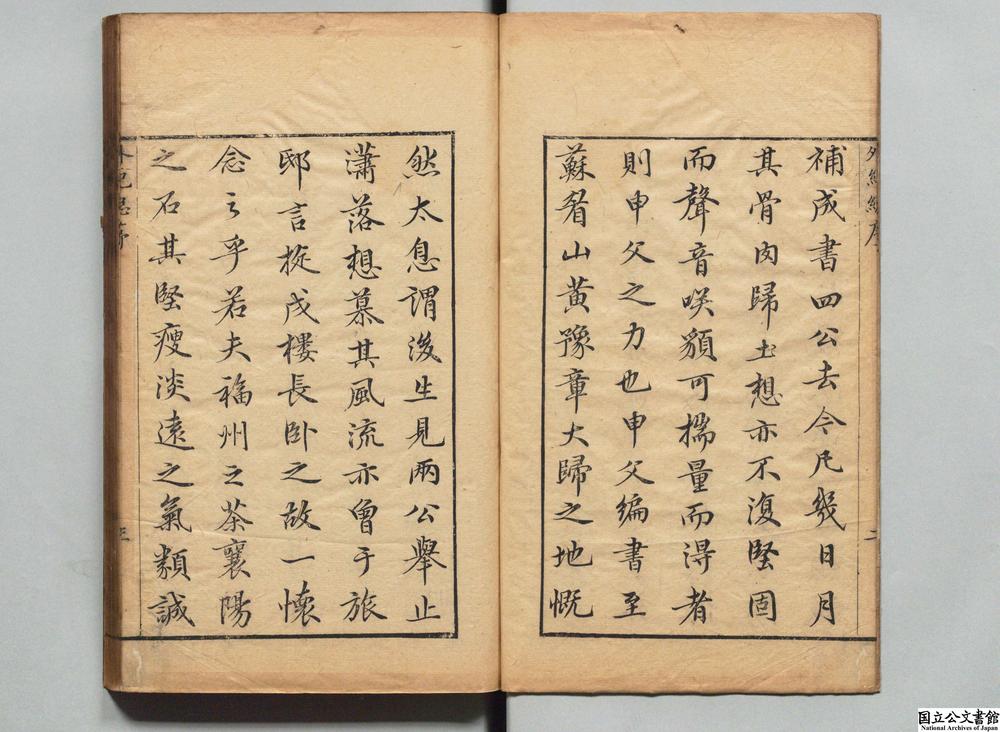 補成書四公去今凡幾日月
其骨肉歸土想亦不復堅固
而聲音咲貌可揣量而得者
則申父之力也申父編書至
蘇眉山黃豫章大歸之地慨
二
然太息謂後生見兩公舉止
瀟落想慕其風流亦曾于旅
邸言掟戍樓長卧之故一懷
念之乎若夫福州之茶襄陽
之石其堅瘦淡遠之氣類誠
三
国立公文書館
National Archives of Japan